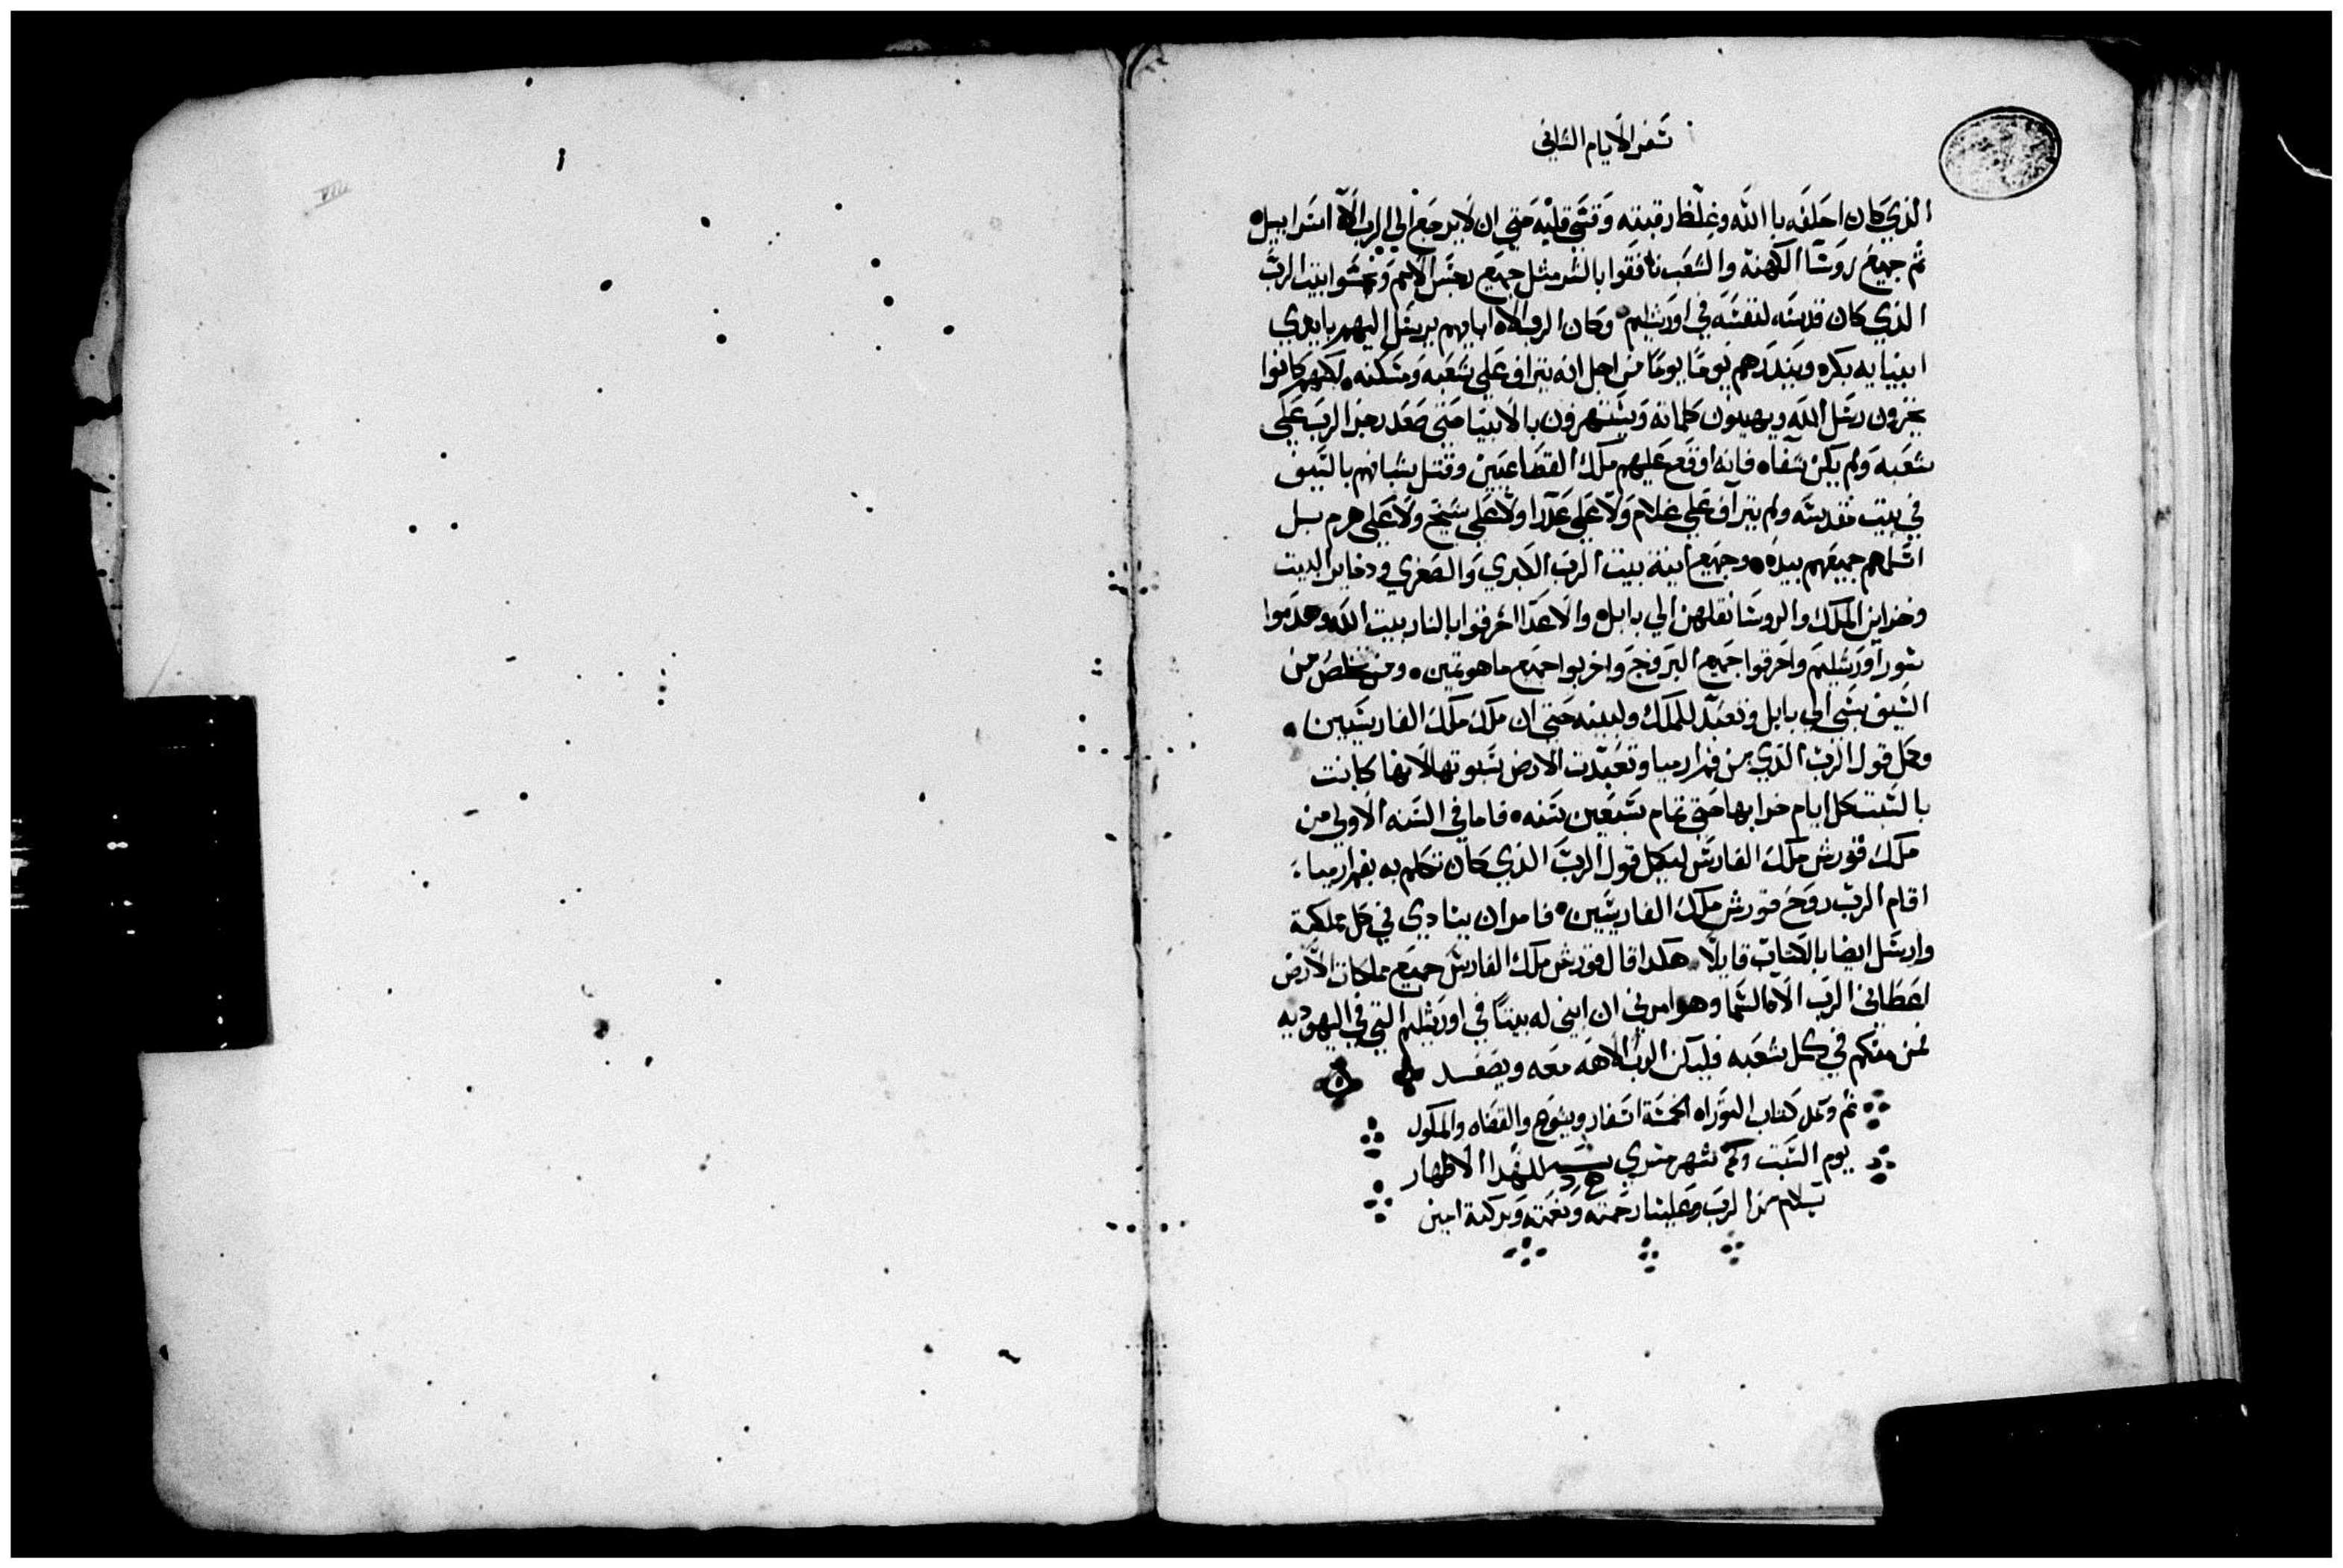 سفر الايام الثاني
الذي كان احلفه باالله وغلظ رقبته وقسي قلبه حتي ان لا يرجع الي الرب الاه اسراييل
ثم جميع روسا الكهنه والشعب نافقوا بالشر مثل جميع رجس الامم ونجسوا بيت الرب
الذي كان قدسه لنفسه في اورشليم وكان الرب الاه ابايهم يرسل اليهم بايدي
انبيايه بكره وينذرهم يوما يوما من اجل انه يتراف علي شعبه ومسكنه لكنهم كانوا
يخزون رسل الله ويهينون كلماته ويستهزون بالانبيا حتي صعد رجز الرب علي
شعبه ولم يكن شفاه فانه اوقع عليهم ملك القضاعيين وقتل شبانهم بالسيف
في بيت مقدسه ولم يتراف علي غلام ولا علي عدرا ولا علي شيخ ولا علي هرم بل
اسلمهم جميعهم بيده وجميع انية بيت الرب الكبري والصغري ودخاير البيت
وخزاين الملك والروسا نقلهن الي بابل والاعدا احرقوا بالنار بيت الله وهدموا
سور اورشليم واحرقوا جميع البروج واخربوا جميع ما هو تمين ومن خلص من
السيف سبي الي بابل وتعبد للملك ولبنيه حتي ان ملك ملك الفارسيين
وكمل قول الرب الذي من فم ارميا وتعبدت الارض سبوتها لانها كانت
بالسبت كل ايام خرابها حتي تمام سبعين سنه فاما في السنه الاولي من
ملك قورش ملك الفارس ليكمل قول الرب الذي كان تكلم به بفم ارميا
اقام الرب روح قورش ملك الفارسيين فامر ان ينادي في كل مملكته
وارسل ايضا بالكتاب قايلا هكدا قال قورش ملك الفارس جميع ملكات الارض
اعطاني الرب الاه السما وهو امرني ان ابني له بيتا في اورشليم التي في اليهوديه
فمن منكم في كل شعبه فليكن الرب الاهه معه ويصعد
تم وكمل كتاب التوراه الخمسة اسفار ويشوع والقضاه والملوك
يوم السبت وكم شهر مسري للشهدا الاطهار
بسلام من الرب وعلينا رحمته ونعمته وبركته امين
VIII